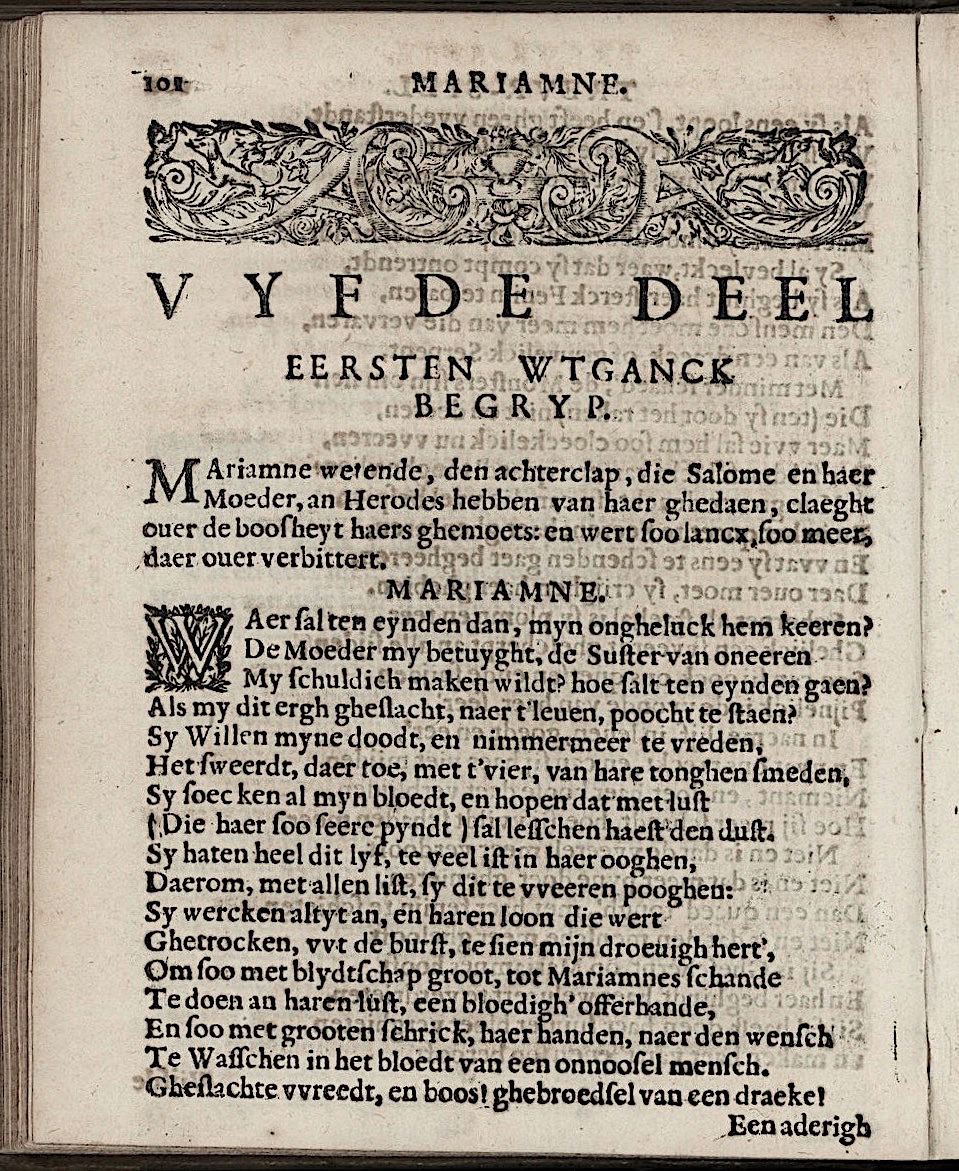 101 MARIAMNE.
VYFDE DEEL
EERSTEN WTGANCK
BEGRYP.
MAriamne wetende, den achterclap, die Salome en haer
Moeder, an Herodes hebben van haer ghedaen, claeght
ouer de boosheyt haers ghemoets: en wert soo lancx, soo meer,
daer ouer verbittert.
MARIAMNE.
WAer sal ten eynden dan, myn ongheluck hem keeren?
De Moeder my betuyght, de Suster van oneeren
My schuldich maken wildt? hoe salt ten eynden gaen?
Als my dit ergh gheslacht, naer t'leuen, poocht te staen?
Sy Willen myne doodt, en nimmermeer te vreden,
Het sweerdt, daer toe, met t'vier, van hare tonghen smeden,
Sy soec ken al myn bloedt, en hopen dat met lust
(Die haer soo seere pyndt) sal lesschen haest den dust.
Sy haten heel dit lyf, te veel ist in haer ooghen,
Daerom, met allen list, sy dit te vveeren pooghen:
Sy wercken altyt an, en haren loon die wert
Ghetrocken, vvt de burst, te sien mijn droeuigh hert',
Om soo met blydtschap groot, tot Mariamnes schande
Te doen an haren lust, een bloedigh' offerhande,
En soo met grooten schrick, haer handen, naer den wensch
Te Wasschen in het bloedt van een onnoosel mensch.
Gheslachte vvreedt, en boos! ghebroedsel van een draeke!
Een aderigh